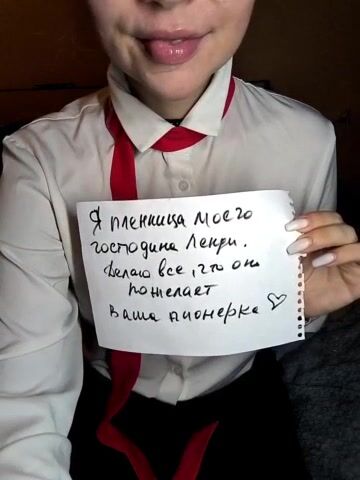 Я пленница моего
господина Ленди.
Делаю все, что он
пожелает
Ваша пионерка ♡